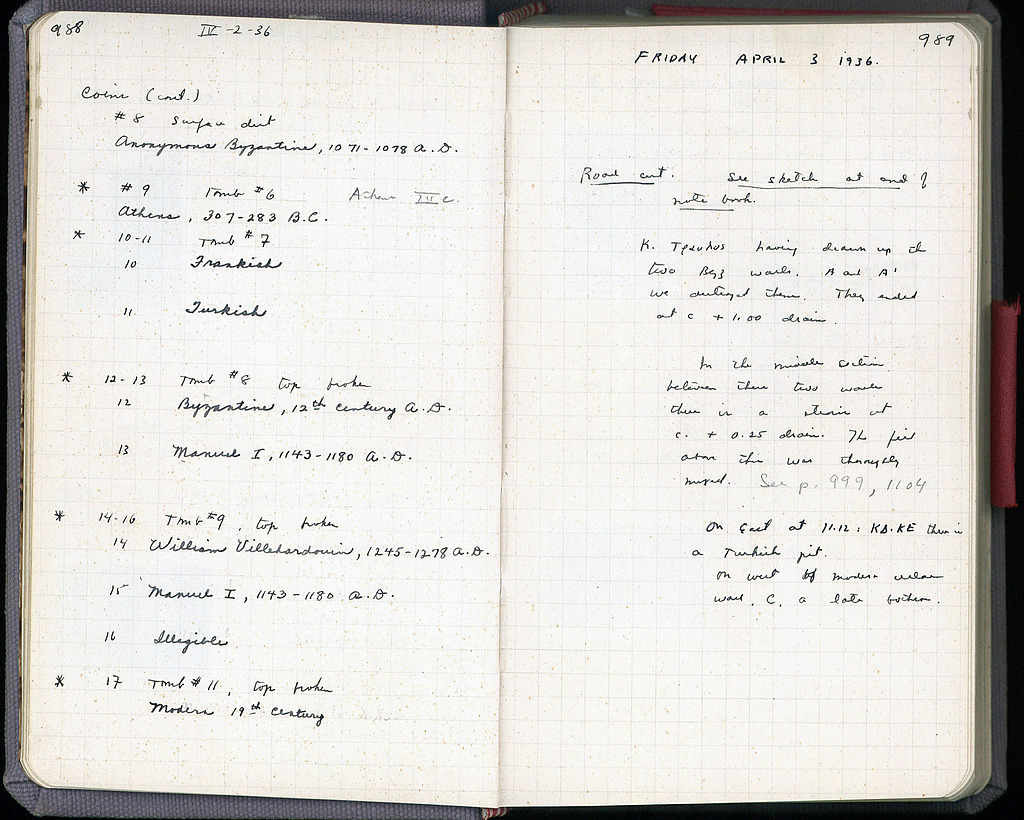 988
IV-2-36
Coins (cont.)
# 8 Surface dirt
Anonymous Byzantine, 1071-1078 A.D.
* # 9 Tomb #6 Athens III c.
Athens, 307-283 B.C.
* 10-11 Tomb #7
10 Frankish
11 Turkish
* 12-13 Tomb #8 top broken
12 Byzantine, 12th century A.D.
13 Manuel I, 1143-1180 A.D.
* 14-16 Tomb #9, top broken
14 William Villehardouin, 1245-1278 A.D.
15 Manuel I, 1143-1180 A.D.
16 Illegible
* 17 Tomb # 11, top broken
Modern 19th century
989
FRIDAY APRIL 3 1936.
Road cut. See sketch at end of
note book.
K. having drawn up the
two Byz walls. A and A'
we destroyed them. They ended
at c + 1.00 drain.
In the middle section
between these two walls
there is a at
c. + 0.25 drain. The fill
above this was thoroughly
mixed. See p. 999, 1104
On East at 11.12: KΔ.KE there is
a Turkish pit.
On west of modern
wall, C, a late bothros.